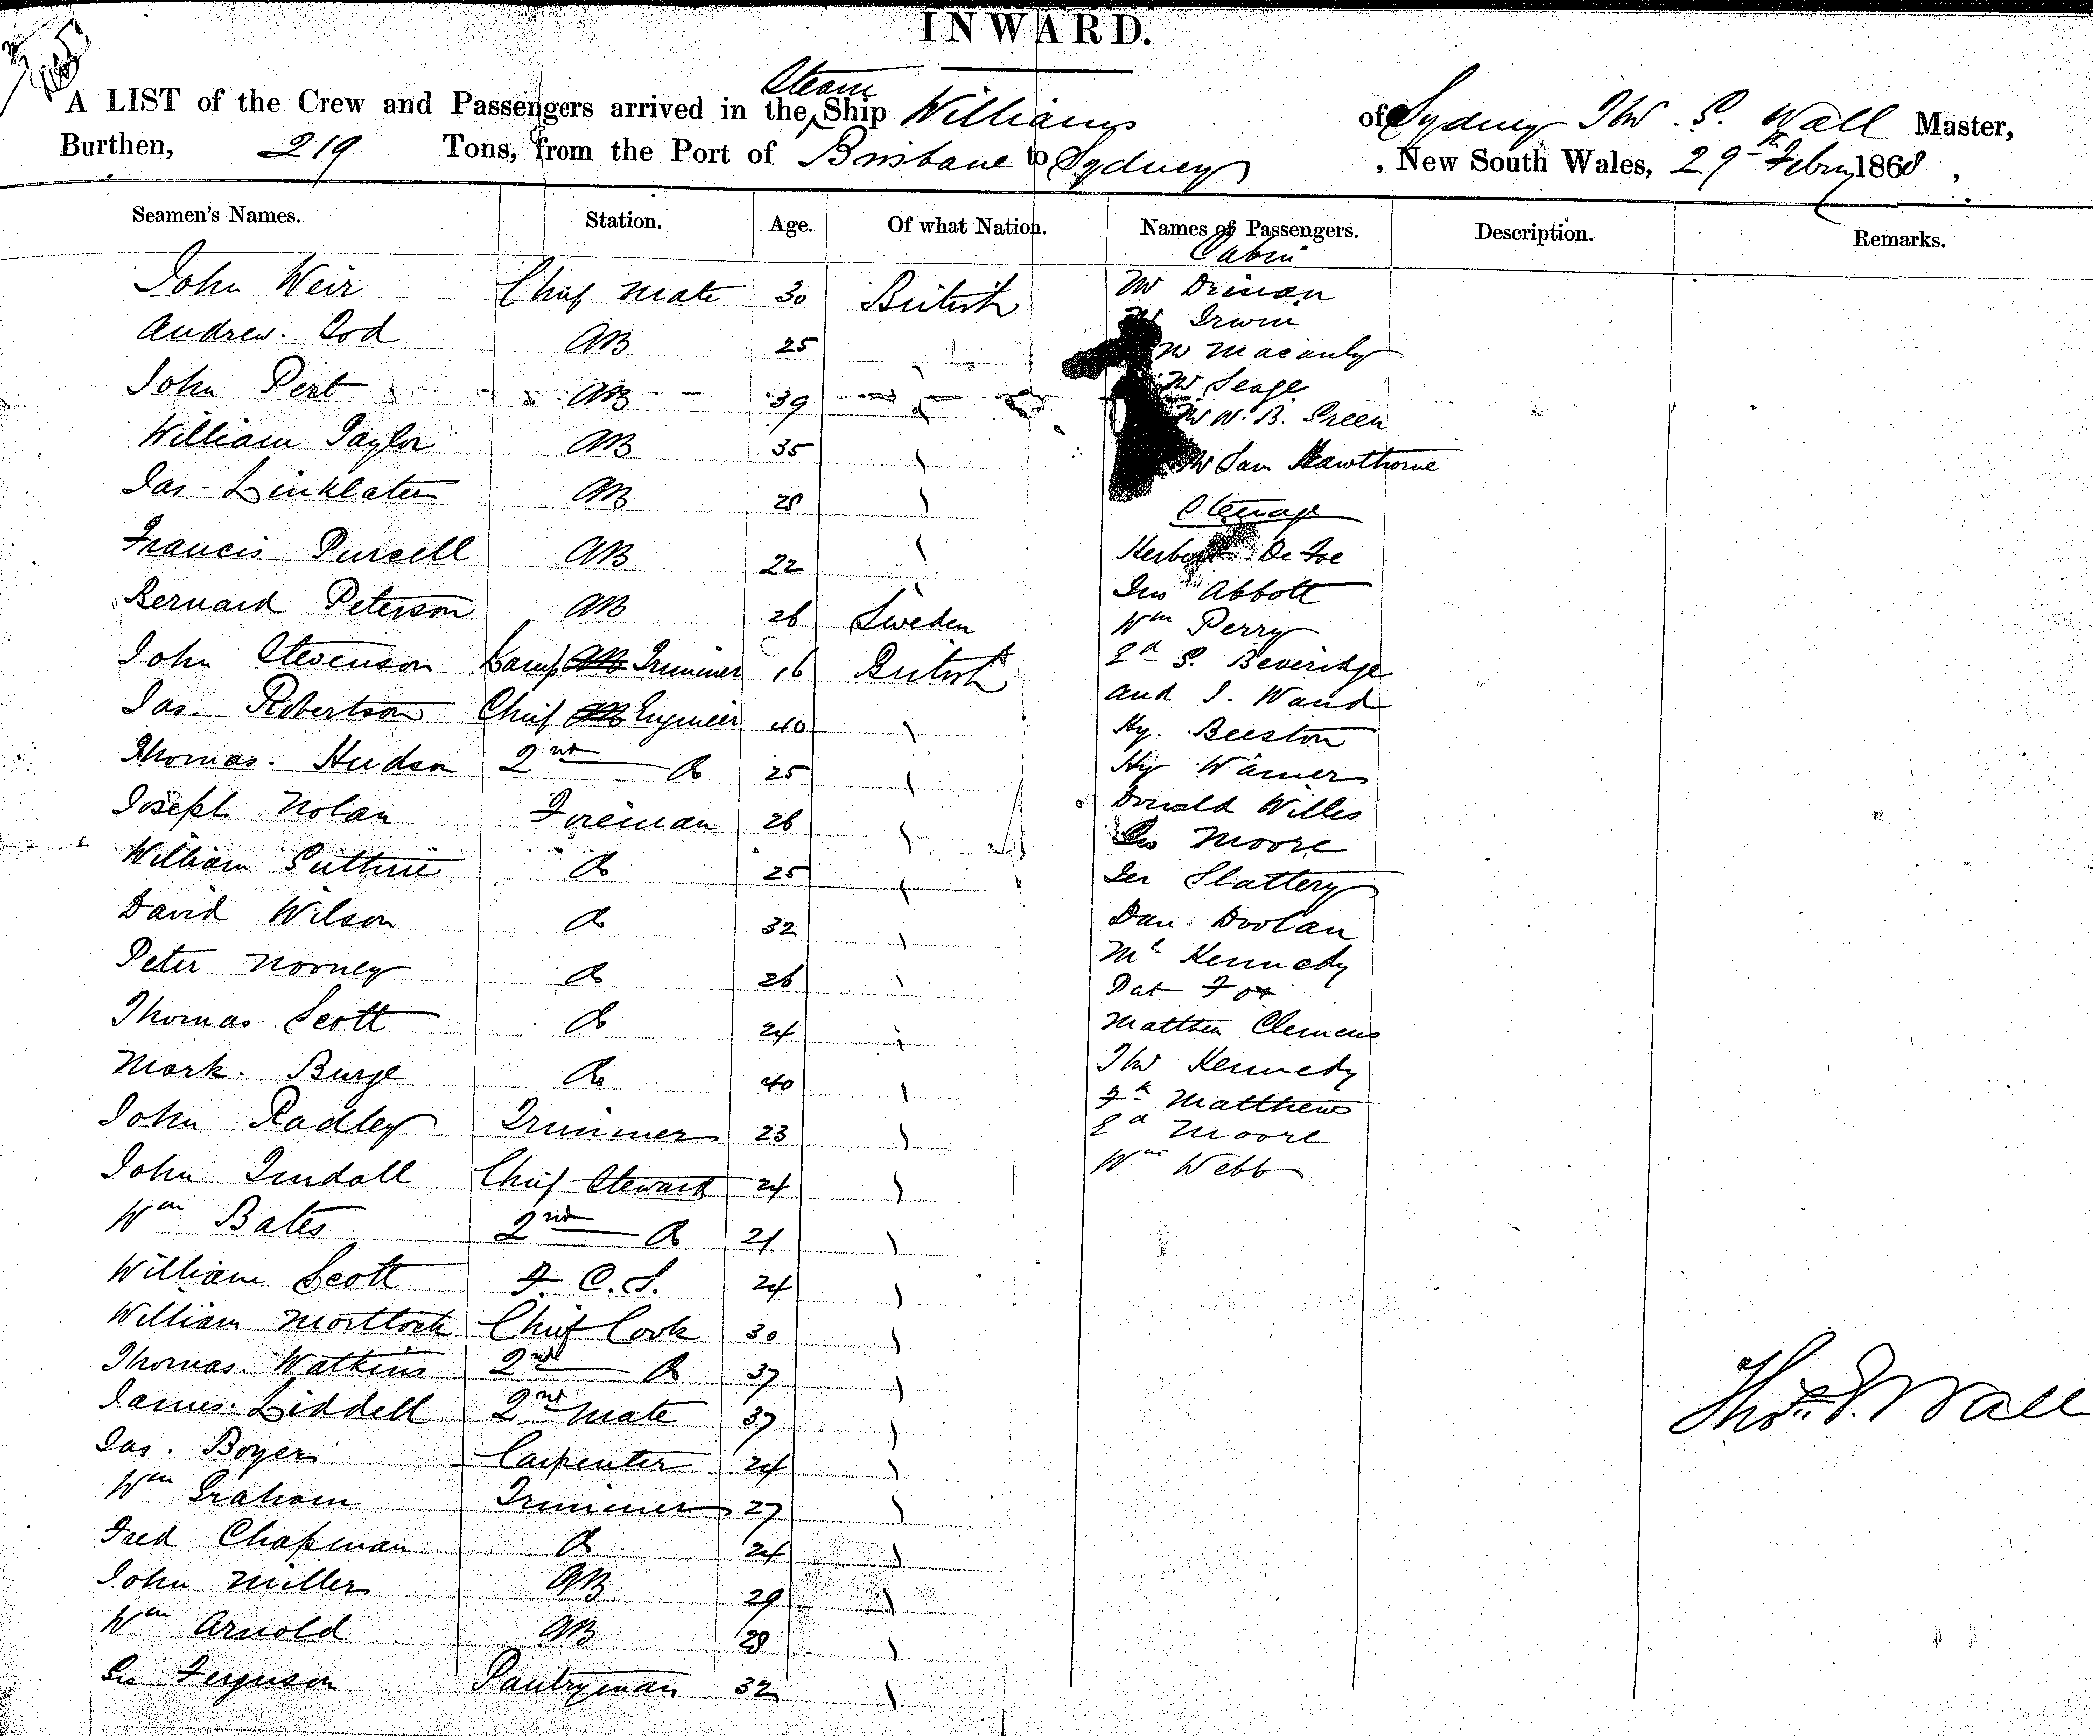 INWARD.
Steam
A LIST of the Crew and Passengers arrived in the Ship Williams of Sydney Thos. S. Wall Master,
Burthen, 219 Tons, from the Port of Brisbane to Sydney, New South Wales, 29th Febry 1868.
Seamen's Names. Station. Age. Of what Nation. Names of Passengers. Description. Remarks.
Cabin
John Weir Chief Mate 30 British Mr
Andrew. AB 25 Mr Irwin
Mr Macauly
John Peet AB 39
Mr W. B. Green
William Taylor AB 35
Mr Sam Hawthorne
Jas Linklater AB
Steerage
Francis Purcell AB 22 De Foe
Abbott
Bernard Peterson AB 26 Sweden Wm Perry
John Stevenson Lamp Trimmer 16 British Ed S. Beveridge
and J. Ward
Jas. Robertson Chief Engineer 40 Hy. Beeston
Thomas. Hudson 2nd Do 25 Hy Warner
Joseph Nolan Fireman 26 Donald Willis
Geo Moore
William Guthrie Do 25 Jer Slattery
David Wilson Do 32 Dan Doolan
Peter Nooney Do 26 Ml Kennedy
Pat Fox
Thomas Scott Do 24 Matthew Clemens
Mark. Burge Do 40 Thos Kennedy
Fk Matthews
John Radley Trimmer 23 Ed Moore
John Tindall Chief Steward 24 Wm Webb
Wm Bates 2nd Do 21
William Scott F. C. S. 24
William Mortlock Chief Cook 30
Thomas. Watkins 2nd Do 37
James. Liddell 2nd Mate 37
Jas. Boyer Carpenter 24
Wm Graham Trimmer 27
Thos S. Wall
Fred Chapman Do 24
John Miller AB 29
Wm Arnold AB 28
Geo Ferguson Pantryman 32